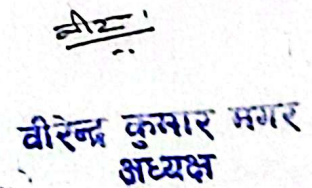 वीरेन्द्र कुमार मगर
अध्यक्ष